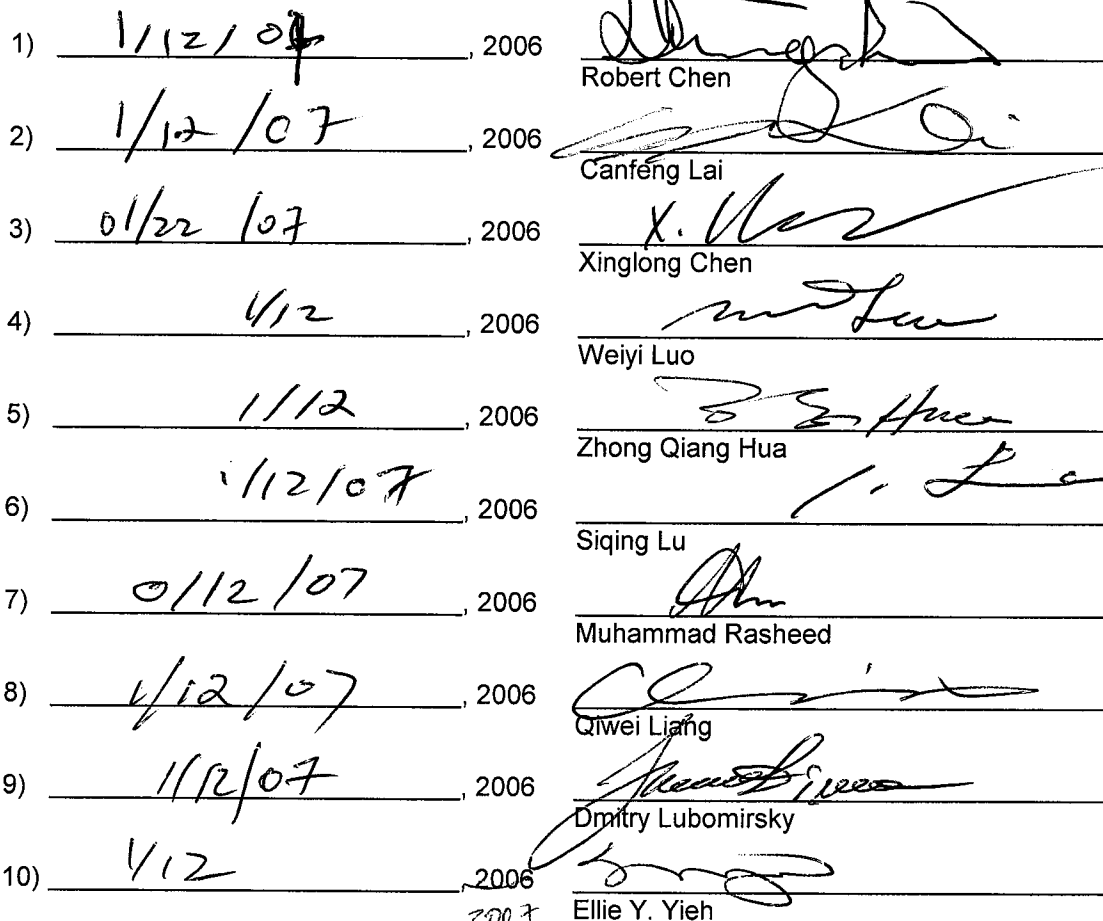 1) 1/12/07, 2006
Robert Chen
2) 1/12/07, 2006
Canfeng Lai
3) 01/22/07, 2006 X.
Xinglong Chen
4) 1/12, 2006
Weiyi Luo
5) 1/12, 2006 Hua
Zhong Qiang Hua
6) 1/12/07, 2006
Siqing Lu
7) 0/12/07, 2006
Muhammad Rasheed
8) 1/12/07, 2006
Qiwei Liang
9) 1/12/07, 2006
Dmitry Lubomirsky
10) 1/12, 2006
2007 Ellie Y. Yieh